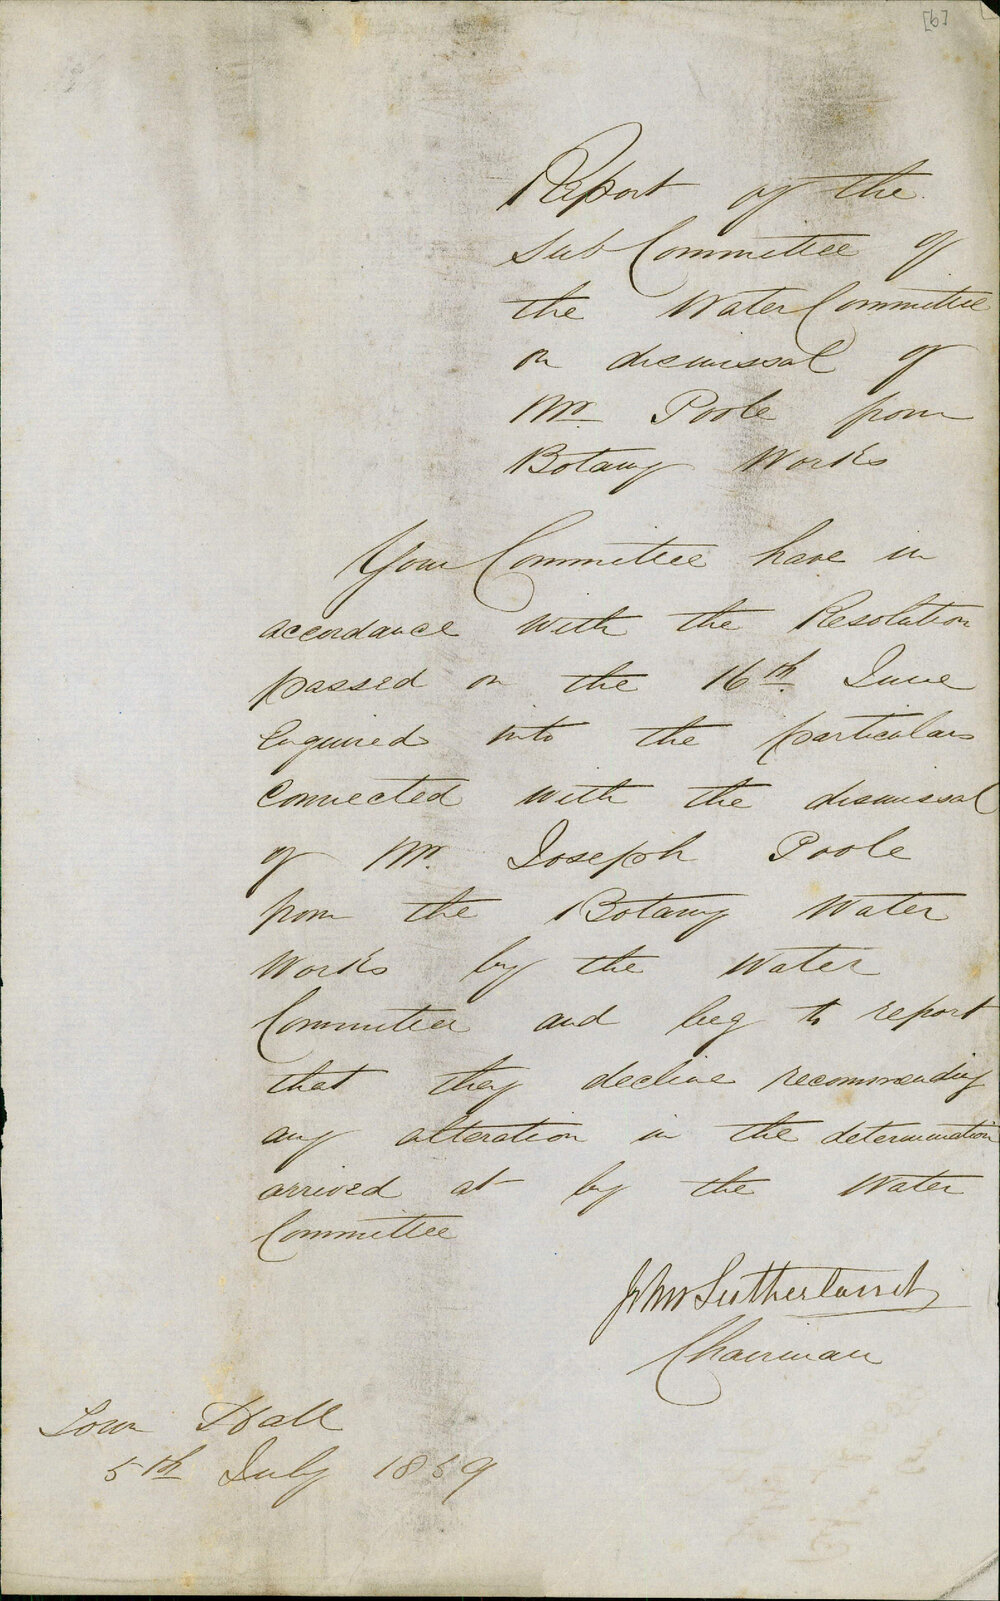 [6]
Report of the
Sub Committee of
the Water Committee
on dismissal of
Mr Poole from
Botany Works
Your Committee have in
accordance with the Resolution
passed on the 16th June
Enquired into the particulars
Connected with the dismissal
of Mr. Joseph Poole
from the Botany Water
Works by the Water
Committee and beg to report
that they decline recommending
any alteration in the determination
arrived at by the Water
Committee
John Sutherland
Chairman
Town Hall
5th July 1859